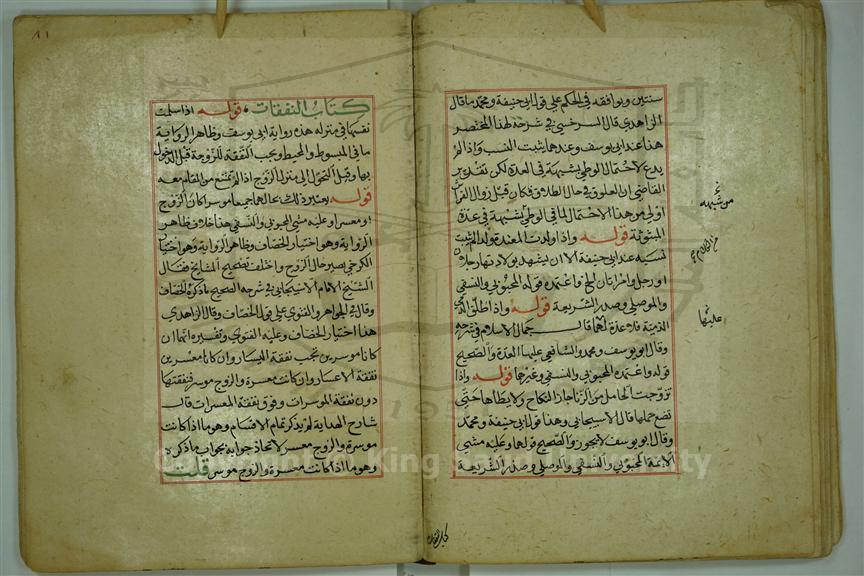 سنتين ويوافقه في الحكم علي قول ابي حنيفة ومحمد ما قال
الزاهدي قال السرخسي في شرحه لهذا المختصر
هذا عند ابي يوسف وعندهما يثبت النسب واذا لم
يدع لاحتمال الوطي بشبهة في العدة لكن تقدير
القاضي ان العلوق في حال الطلاق فكان قبل زوال الفراش
اولي من هذا الاحتمال لما في الوطي بشبهة في عدة
المبتوتة قوله واذا ولدت المعتدة ولدا لم يثبت
نسبه عند ابي حنيفة الا ان يشهد بولادتها رجلان
او رجل وامراتان الخ واعتمده قوله المحبوبي والنسفي
والموصلي وصدر الشريعة قوله واذا طلق الذمي
الذمية فلا عدة عليها قال جمال الاسلام في شرحه
وقال ابو يوسف ومحمد والشافعي عليها العدة والصحيح
قوله واعتمده المحبوبي والنسفي وغيرهما قوله واذا
تزوجت الحامل من الزنا جاز النكاح ولا يطاها حتي
تضع حملها قال الاسبيجابي وهذا قول ابي حنيفة ومحمد
وقال ابو يوسف لا يجوز والصحيح قولهما وعليه مشي
الائمة المحبوبي والنسفي والموصلي وصدر الشريعة
من شبهه
عليها
كتاب النفقات
٨١
كتاب النفقات، قوله اذا سلمت
نفسها في منزله هذه رواية ابي يوسف وظاهر الرواية
ما في المبسوط والمحيط وتجب النفقة للزوجة قبل الدخول
بها وقبل التحول الي منزل الزوج اذا لم تمتنع من المقام معه
قوله يعتبر ذلك بحالهما جميعا موسرا كان الزوج
او معسرا وعليه مشي المحبوبي والنسفي هذا خلاف ظاهر
الرواية وهو اختيار الخصاف وظاهر الرواية وهو اختيار
الكرخي يصير حال الزوج واختلف تصحيح المشايخ فقال
الشيخ الامام الاسبيجابي في شرحه الصحيح ما ذكره الخصاف
وقال في الجواهر والفتوي علي قول الخصاف وقال الزاهدي
هذا اختيار الخصاف وعليه الفتوي وتفسيره انهما ان
كانا موسرين تجب نفقة اليسار وان كانا معسرين
نفقة الاعسار وان كانت معسرة والزوج موسر فنفقتها
دون نفقة الموسرات وفوق نفقة المعسرات قال
شارح الهداية لم يذكر تمام الاقسام وهو ما اذا كانت
موسرة والزوج معسر لاتحاد جوابه بجواب ما ذكره
وهو ما اذا كانت معسرة والزوج موسر قلت
Copyright © King Saud University
1957